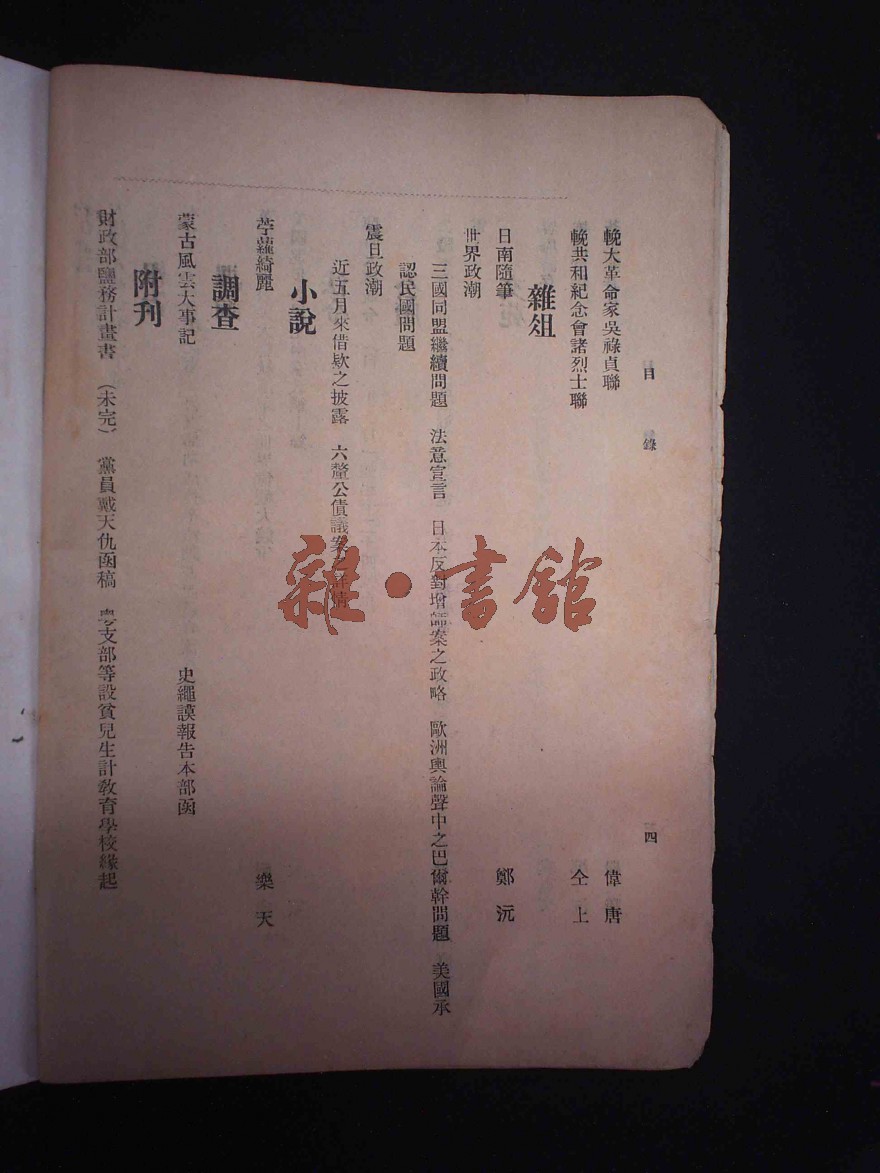 目錄 四
輓大革命家吳祿貞聯 偉唐
輓共和紀念會諸烈士聯 仝上
雜俎
日南隨筆 鄭沅
世界政潮
三國同盟繼續問題 法意宣言 日本反對增師案之政略 歐洲輿論聲中之巴爾幹問題 美國承
認民國問題
震旦政潮
近五月來借欵之披露 六釐公債議案之詳情
小說
苧蘿綺麗 樂天
調查
蒙古風雲大事記 史繩謨報告本部函
附刊
財政部鹽務計畫書(未完) 黨員戴天仇函稿 粵支部等設貧兒生計教育學校緣起
雜·書館